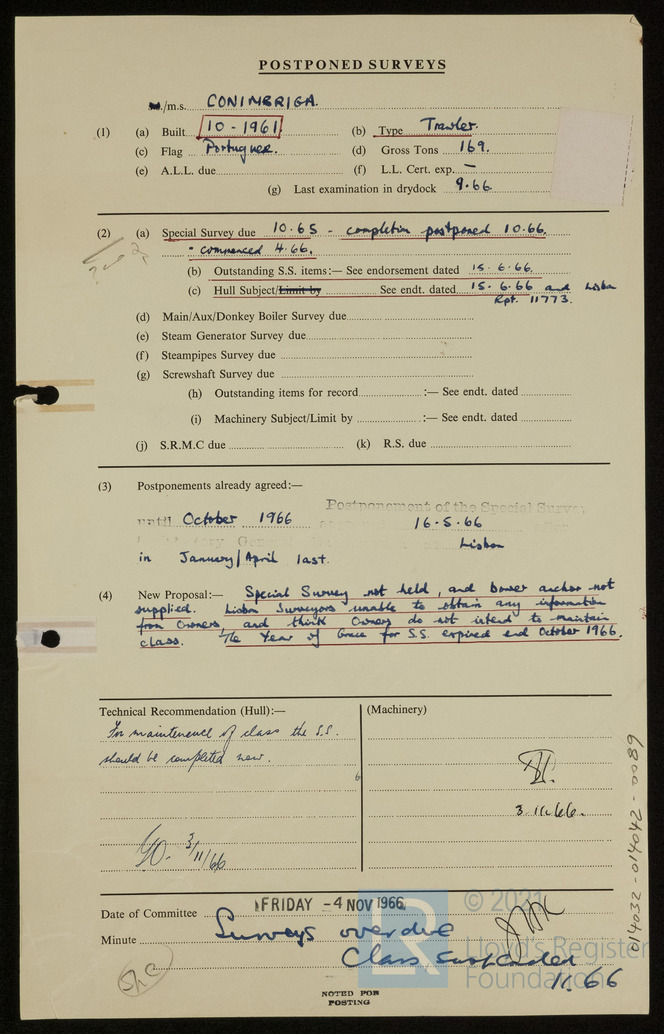 POSTPONED SURVEYS
/m.s. CONIMBRIGA.
(1) (a) Built 10-1961 (b) Type Trawler.
(c) Flag Portuguese. (d) Gross Tons 169.
(e) A.L.L. due (f) L.L. Cert. exp. –
(g) Last examination in drydock 9.66
(2) (a) Special Survey due 10.65 - completion postponed 10.66.
" commenced 4.66.
(b) Outstanding S.S. items:— See endorsement dated 15.6.66.
(c) Hull Subject/Limit by See endt. dated 15.6.66 and Lisbon
Rpt. 11773.
(d) Main/Aux/Donkey Boiler Survey due
(e) Steam Generator Survey due
(f) Steampipes Survey due
(g) Screwshaft Survey due
(h) Outstanding items for record :— See endt. dated
(i) Machinery Subject/Limit by :— See endt. dated
(j) S.R.M.C due (k) R.S. due
(3) Postponements already agreed:—
Postponement of the Special Survey
until October 1966 16.5.66
Lisbon
in January/April last.
(4) New Proposal:— Special Survey not held, and bower anchor not
supplied. Lisbon Surveyors unable to obtain any information
from Owners and think Owners do not intend to maintain
class. The Year of Grace for S.S. expired end October 1966.
Technical Recommendation (Hull):— (Machinery)
For maintenance of class the S.S.
should be completed now.
3.11.66.
3/11/66
Date of Committee FRIDAY -4 NOV 1966
Minute Surveys overdue
Class suspended
11.66
NOTED FOR
POSTING
© 2021
Lloyd's Register
Foundation
014032-014042-0089